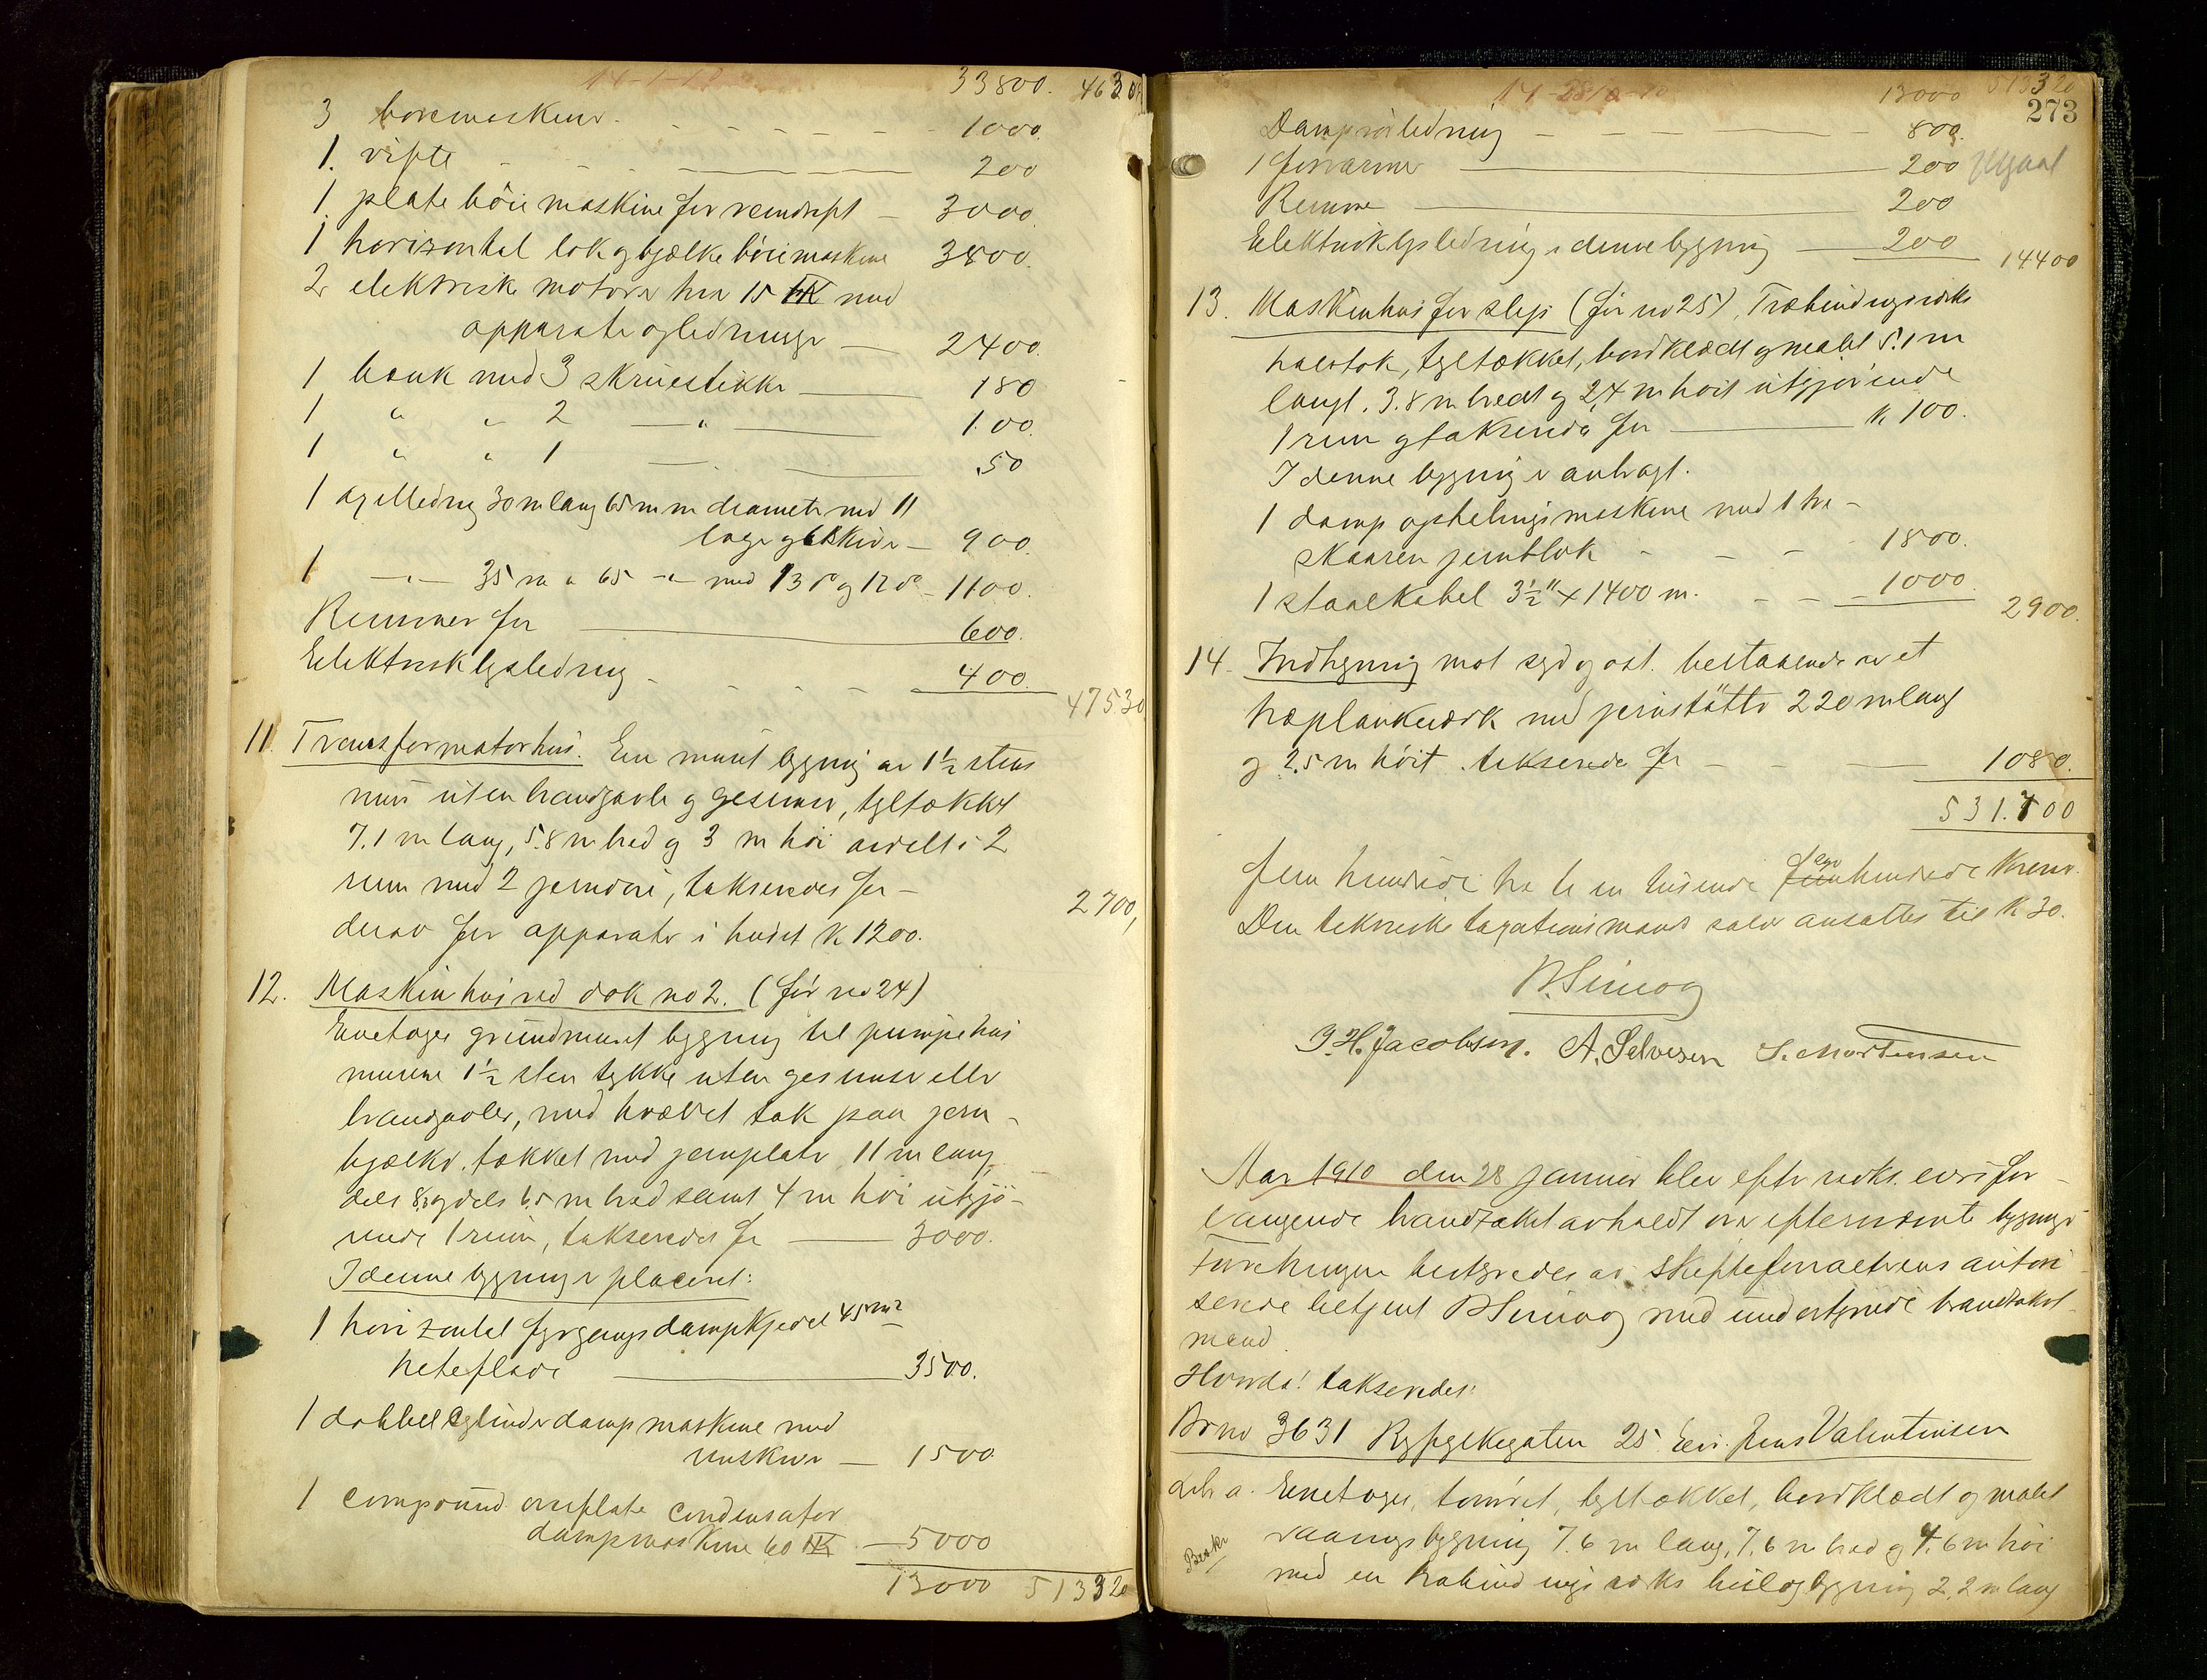 33800. 4630
3 boremaskiner - - - - - - 1000.
1. vifte - - - 200
1 plate böie maskine for remdrift - 3000.
1 horizontal lok og bjælke böiemaskine 3800.
2 elektriske motorer hver 15 HK med
apparater og ledninger — 2400.
1 bænk med 3 skruestikker — 180
1 " " 2 —"— 100.
1 " " 1 — 50
1 axelledning 30 m lang 65 m m diameter med 11
lager og 6 skiver — 900.
1 —"— 35 m " 65 —"— med 13 do og 12 do - 1100.
Remmer for — 600.
Elektrisk lysledning - - - - 400.
47530
11. Transformatorhus. En muret bygning av 1½ stens
mur uten brandgavle og gesimser, tegltækket
7.1 m lang, 5.8 m bred og 3 m høi avdelt i 2
rum med 2 jerndøre, takseredes for —
2700,
derav for apparater i huset K 1200.
12. Maskinhus ved dok no 2. (før no 24)
Enetages grundmuret bygning til pumpehus
murene 1½ sten tykke uten gesimser eller
brandgavler, med hvælvet tak paa jern-
bjælker tækket med jernplater, 11 m lang,
dels 8, og dels 6.5 m bred samt 4 m høi utgjø-
rende 1 rum, takseredes for — 3000.
I denne bygning er placeret:
1 horizontal fyrgangs dampkjedel 45 m²
heteflade — 3500.
1 dobbel cylinder dampmaskine med
1500.
1 compound overflate condensator
dampmaskine 60 HK — 5000
13000 513320
13000 513320
273
Damprørledning — 800.
1 forvarmer — 200
Remme — 200
Elektrisk lysledning i denne bygning — 200
14400
13. Maskinhus for slip (før no 25), Træbindingsverks
halvtak, tegltækket, bordklædt og malet 5.1 m
langt. 3.8 m bredt og 2,4 m høit utgjørende
1 rum og takseredes for — K 100.
I denne bygning er anbragt.
1 damp ophalingsmaskine med 1 tre-
skaaren jernblok - - - 1800.
1 staalkabel 3½" x 1400 m. - - - 1000
2900.
14. Indhegning mot syd og øst. bestaaende av et
træplankeverk med jernstøtter 220 m lang
og 2.5 m høit. takseredes for — 1080.
531.700
Fem hundrede tre ti en tusende syv hundrede kroner.
Den tekniske taxationsmands salær ansattes til K 30.
B. Simog
J. H. Jacobsen. A. Salvesen S. Mortensen
Aar 1910 den 28 januar blev efter vedk. eiers for-
langende brandtakst avholdt over efternævnte bygninger
Forretningen bestyredes av skifteforvalterens autori
serede betjent B Simog med undertegnede brandtakst-
mænd.
Hvorda! takseredes:
Br no 3631 Rypjekegaten 25. Eier: Jens Valentinsen
Litr a. Enetages, tømret, tegltækket, bordklædt og malet
vaaningsbygning 7.6 m lang, 7.6 m bred og 4.6 m høi
med en træbindingsverks bislagbygning 2,2 m lang